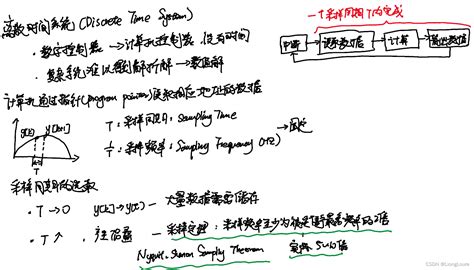 离散时间系统 (Discrete Time System)
一个采样周期T内完成
· 数字控制器 → 计算机控制器 没有时间
· 复杂系统难以得到解析解 → 数值解
中断 读取数据 计算 输出数据
计算机通过指针(Program pointer)读取相应地址上的数据
y[k] y[k+1]
T: 采样周期: Sampling Time
1/T: 采样频率: Sampling Frequency (Hz) → 固定
采样周期的选取
· T → 0 y[k] → y(t) — 大量数据需要储存
· T ↑,
采样定理: 采样频率至少为被采信号最高频率的2倍
Nyquist-Shannon Sampling Theorem 实际 5~10倍
CSDN @LongLouis